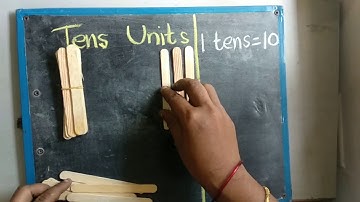 Tens Units 1 tens=10